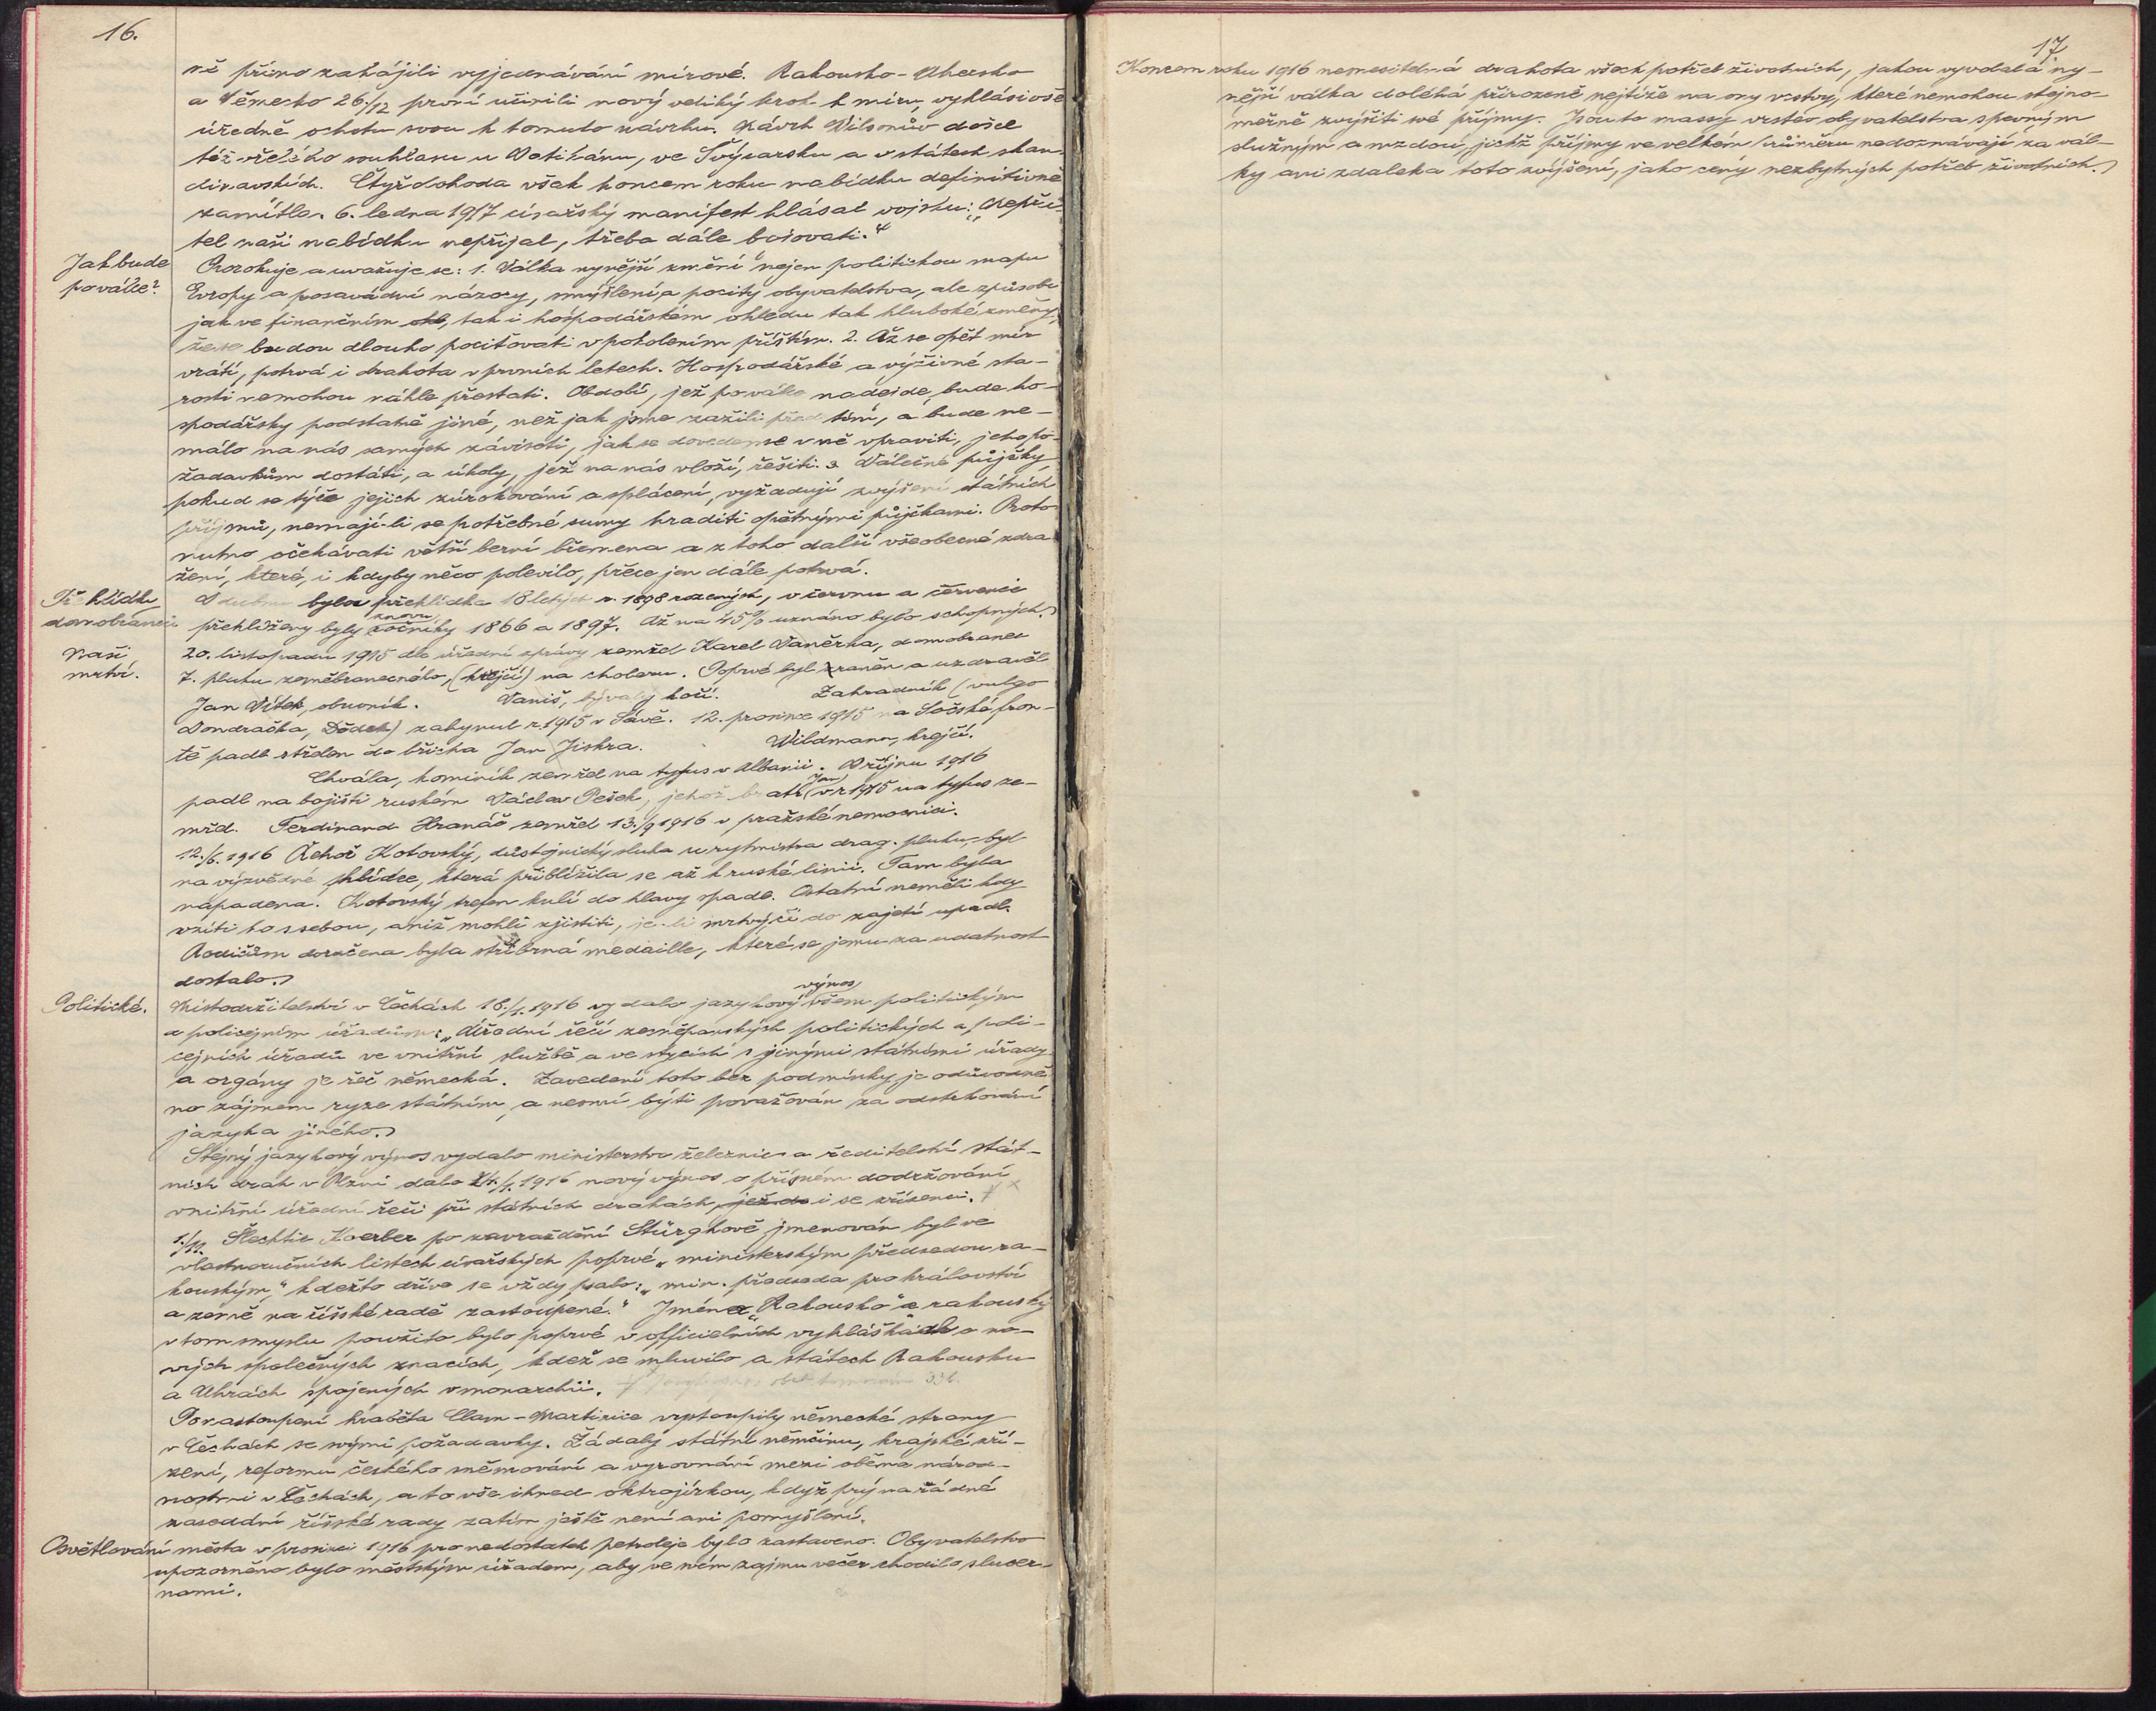 16.
ně přímo zahájili vyjednávání mírové. Rakousko-Uhersko
a Německo 26./12 první učinili nový veliký krok k míru, vyhlásivše
úředně ochotu svou k tomuto návrhu. Návrh Wilsonův došel
též vřelého souhlasu u Vatikánu, ve Švýcarsku a v státech skan-
dinavských. Čtyřdohoda však koncem roku nabídku definitivně
zamítla. 6. ledna 1917 císařský manifest hlásal vojsku: „Nepří-
tel naši nabídku nepřijal, třeba dále bojovati.“
Jak bude
po válce?
Prorokuje a uvažuje se: 1. Válka nynější změní nejen politickou mapu
Evropy a posavádní názory, smýšlení a pocity obyvatelstva, ale způsobí
jak ve finančním, tak i hospodářském ohledu tak hluboké změny,
že se budou dlouho pociťovati v pokolením příštím. 2. Až se opět mír
vrátí, potrvá i drahota v prvních letech. Hospodářské a výživné sta-
rosti nemohou náhle přestati. Období, jež po válce nadejde, bude ho-
spodářsky podstatně jiné, než jak jsme zažili před tím, a bude ne-
málo na nás samých záviseti, jak se dovedeme v ně vpraviti, jeho po-
žadavkům dostáti, a úkoly, jež na nás vloží, řešiti. 3. Válečné půjčky
pokud se týče jejich zúrokování a splácení, vyžadují zvýšení státních
příjmů, nemají-li se potřebné sumy hraditi opětnými půjčkami. Proto
nutno očekávati větší berní břemena a z toho další všeobecné zdra-
žení, které, i kdyby něco polevilo, přece jen dále potrvá.
Přehlídky
domobranců
V dubnu byla přehlídka 18letých r. 1898 rozených, v červnu a červenci
přehlíženy byly znovu ročníky 1866 a 1897. Až na 45% uznáno bylo schopných.
Naši
mrtví.
20. listopadu 1915 dle úřední zprávy zemřel Karel Vaněrka, domobranec
7. pluku zeměbraneckého, (krejčí) na choleru. Poprvé byl zraněn a uzdravěl
Jan Vítek, obuvník. Vaniš, bývalý kočí. Zahradník (vulgo
Vondračka, Dědek) zahynul r. 1915 v Sávě. 12. prosince 1915 na Sočské fron-
tě padl střelen do břicha Jan Jiskra. Wildmann, krejčí.
Chvála, kominík zemřel na tyfus v Albanii. V říjnu 1916
padl na bojišti ruském Václav Pešek, jehož bratr Jan v r. 1915 na tyfus ze-
mřel. Ferdinand Hranáč zemřel 13./9 1916 v pražské nemocnici.
12./6. 1916 Řehoř Kotovský, důstojnický sluha u rytmistra drag. pluku, byl
na výzvědné hlídce, která přiblížila se až k ruské linii. Tam byla
napadena. Kotovský trefen kulí do hlavy spadl. Ostatní neměli kdy
vzíti ho s sebou, aniž mohli zjistiti, je-li mrtvý, či do zajetí upadl.
Rodičům doručena byla stříbrná medaille, které se jemu za udatnost
dostalo.
Politické.
Místodržitelství v Čechách 18./1. 1916 vydalo jazykový výnos všem politickým
a policejním úřadům: „Úřední řečí zeměpanských politických a poli-
cejních úřadů ve vnitřní službě a ve stycích s jinými státními úřady
a orgány je řeč německá. Zavedení toto bez podmínky je odůvodně-
no zájmem ryze státním, a nesmí býti považován za odstrkování
jazyka jiného.
Stejný jazykový výnos vydalo ministerstvo železnic a ředitelství stát-
ních drah v Plzni dalo 24./1. 1916 nový výnos o přísném dodržování
vnitřní úřední řeči při státních drahách, jež do i se zřízenci.
1./11. Šlechtic Koerber po zavraždění Stürgkhově jmenován byl ve
vlastnoručních listech císařských poprvé „ministerským předsedou ra-
kouským,“ kdežto dříve se vždy psalo: „min. předseda pro království
a země na říšské radě zastoupené.“ Jména „Rakousko“ a rakouský
v tom smyslu použito bylo poprvé v officielních vyhláškách o no-
vých společných znacích, kdež se mluvilo o státech Rakousku
a Uhrách spojených v monarchii.
Po nastoupení hraběte Clam-Martinice vystoupily německé strany
v Čechách se svými požadavky. Žádaly státní němčinu, krajské zří-
zení, reformu českého sněmování a vyrovnání mezi oběma národ-
nostmi v Čechách, a to vše ihned oktrojírkou, když prý na řádné
zasedání říšské rady zatím ještě není ani pomyšlení.
Osvětlování města v prosinci 1916 pro nedostatek petroleje bylo zastaveno. Obyvatelstvo
upozorněno bylo městským úřadem, aby ve svém zájmu večer chodilo s lucer-
nami.
17
Koncem roku 1916 nemesitelná drahota všech potřeb životních, jakou vyvolala ny-
nější válka doléhá přirozeně nejtíže na ony vrstvy, které nemohou stejno-
měrně zvýšiti své příjmy. Jsou to massy vrstev obyvatelstva s pevným
služným a mzdou, jichž příjmy ve velkém průměru nedoznávají za vál-
ky ani zdaleka toto zvýšení, jako ceny nezbytných potřeb životních.